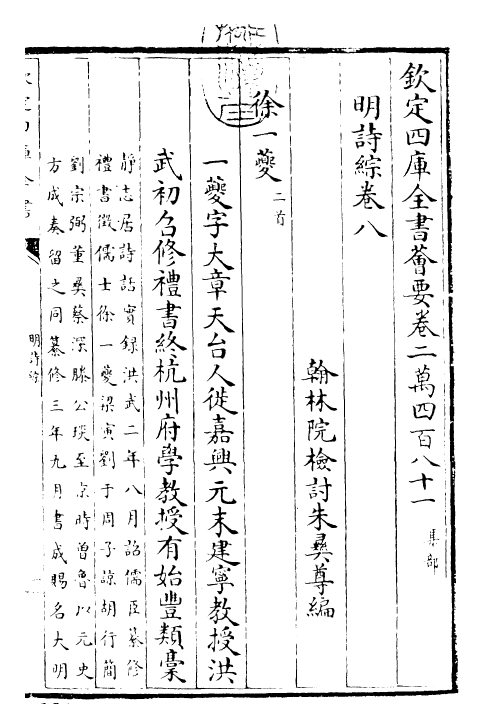 欽定四庫全書薈要卷二萬四百八十一 集部
明詩綜卷八
翰林院檢討朱彝尊編
徐一夔 二首
一夔字大章天台人徙嘉興元末建寧教授洪
武初召修禮書終杭州府學教授有始豐類稾
靜志居詩話實録洪武二年八月詔儒臣纂修
禮書徴儒士徐一夔梁寅劉于周子諒胡行簡
劉宗弼董彝蔡深滕公琰至京時曾魯以元史
方成奏留之同纂修三年九月書成賜名大明
明詩綜